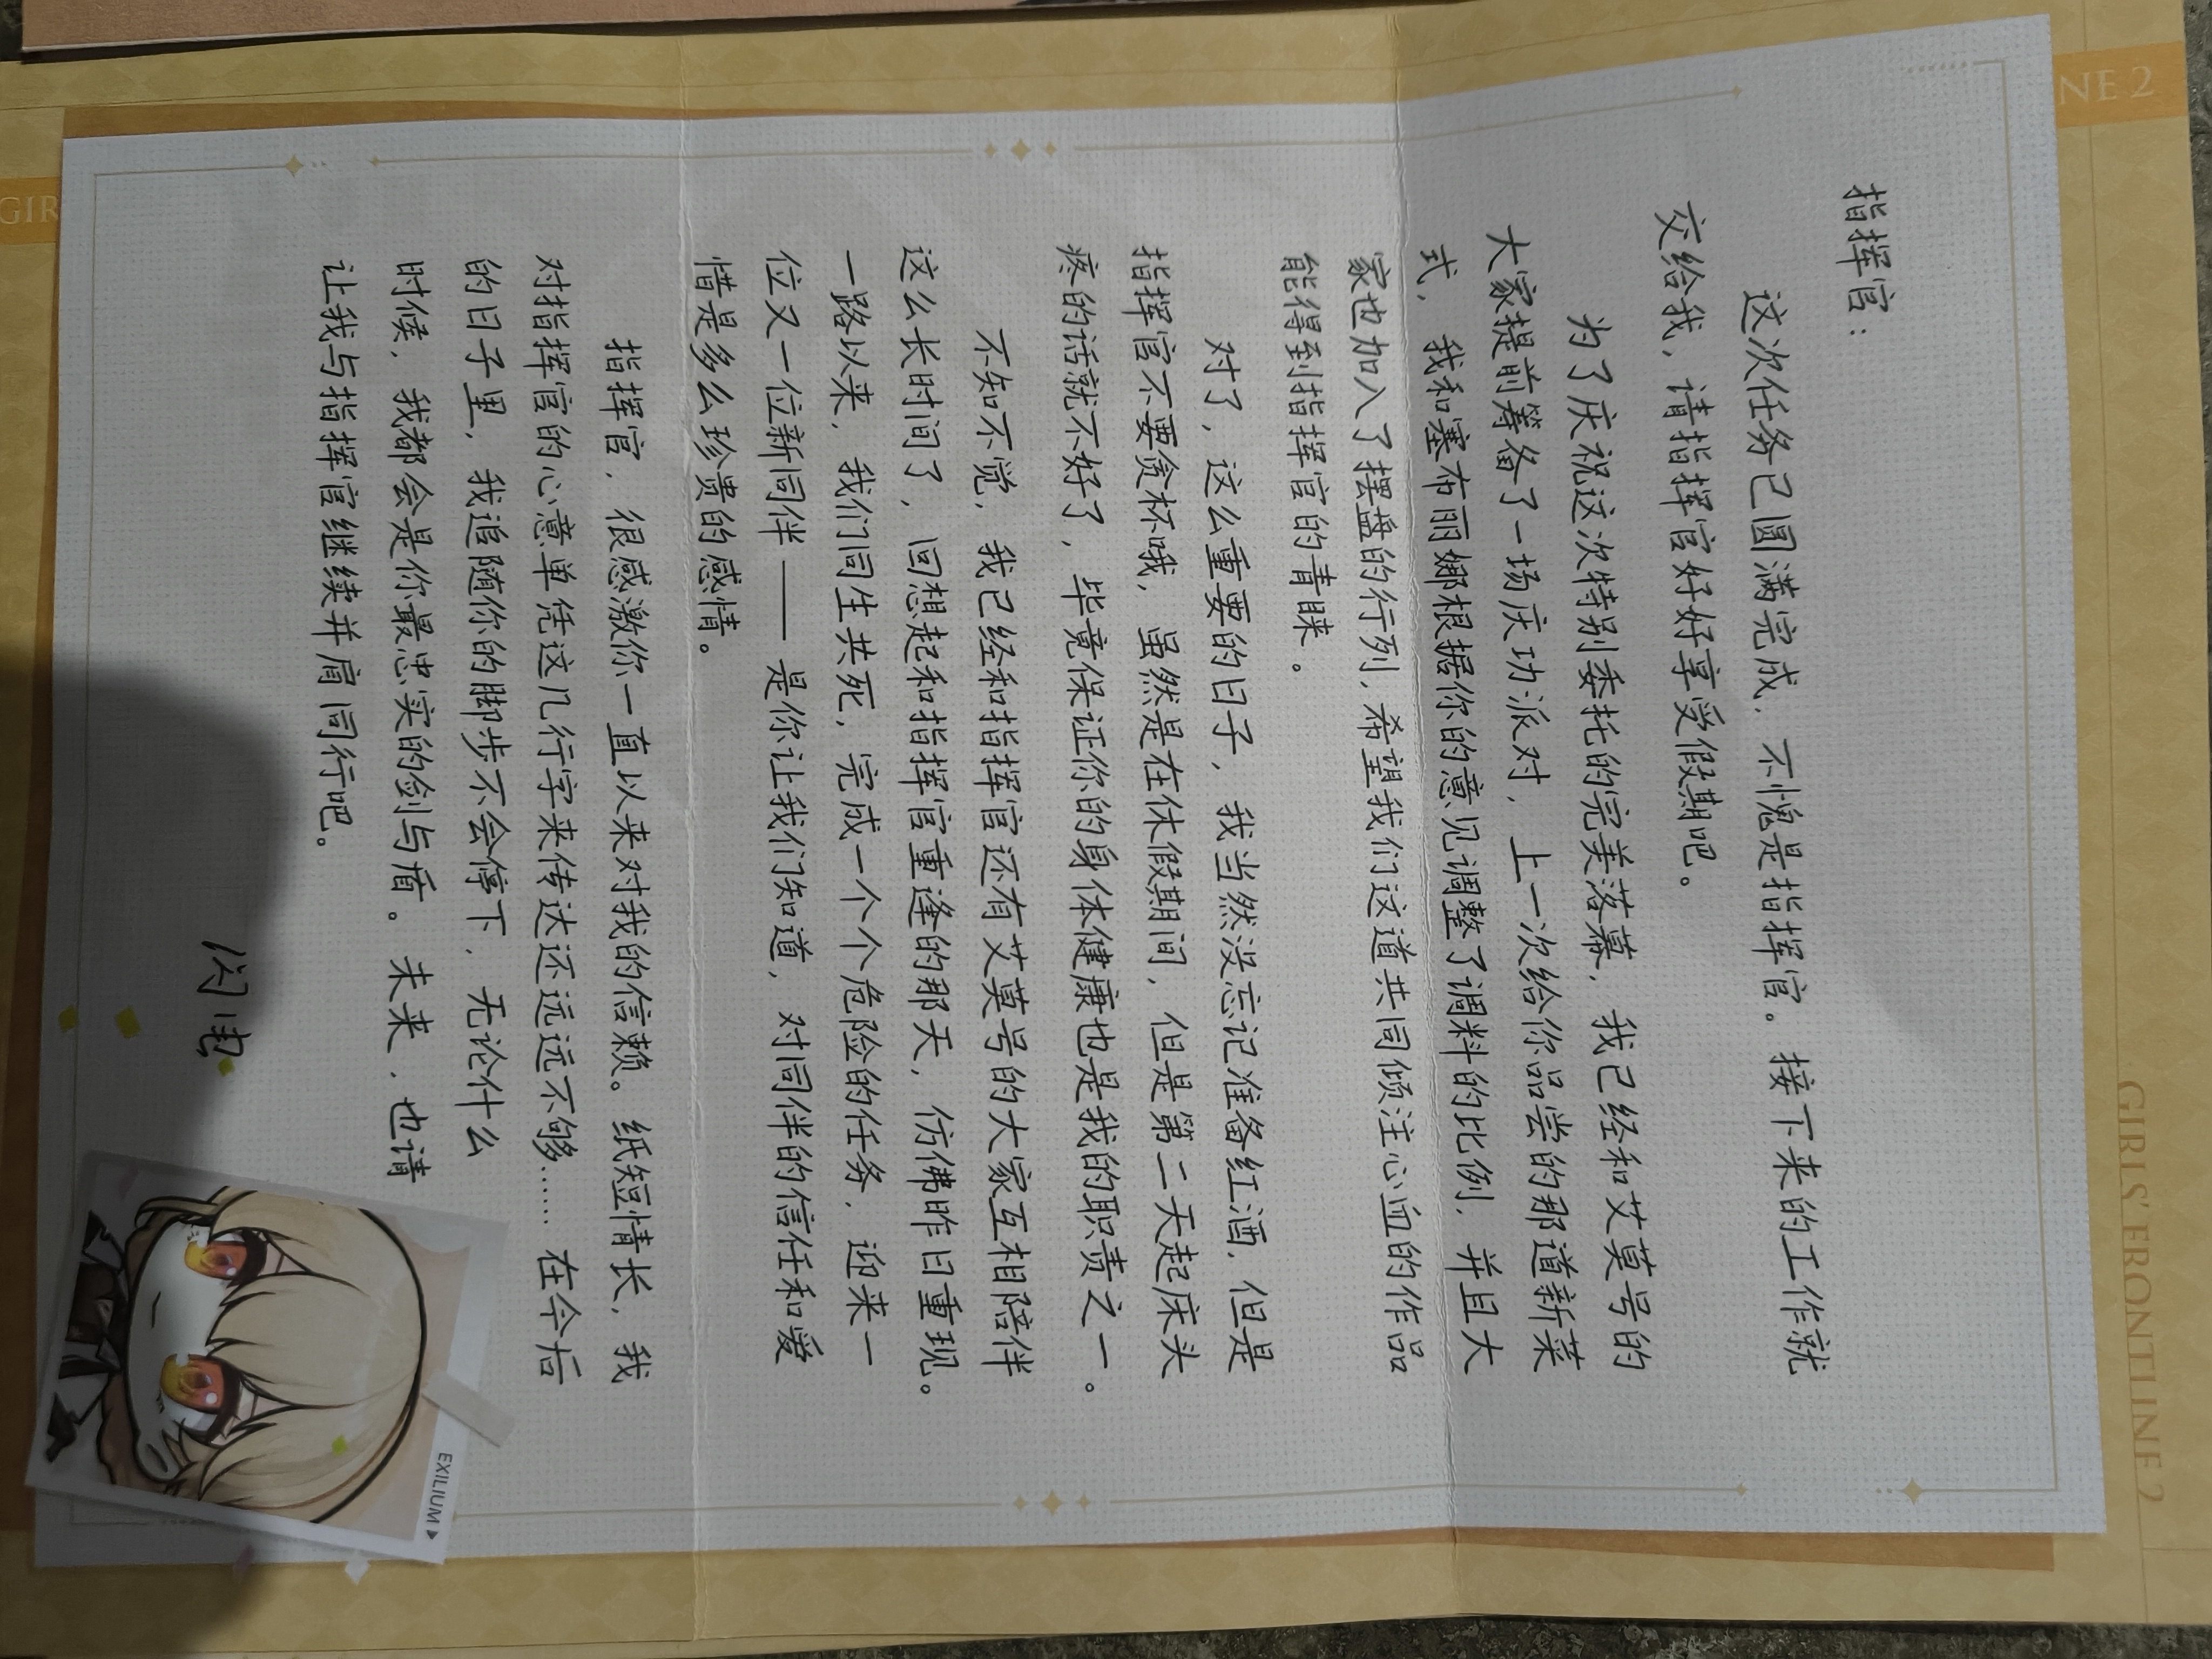 指挥官：
这次任务已圆满完成，不愧是指挥官。接下来的工作就
交给我，请指挥官好好享受假期吧。
为了庆祝这次特别委托的完美落幕，我已经和艾莫号的
大家提前筹备了一场庆功派对，上一次给你品尝的那道新菜
式，我和塞布丽娜根据你的意见调整了调料的比例，并且大
家也加入了摆盘的行列，希望我们这道共同倾注心血的作品
能得到指挥官的青睐。
对了，这么重要的日子，我当然没忘记准备红酒，但是
指挥官不要贪杯哦，虽然是在休假期间，但是第二天起床头
疼的话就不好了，毕竟保证你的身体健康也是我的职责之一。
不知不觉，我已经和指挥官还有艾莫号的大家互相陪伴
这么长时间了，回想起和指挥官重逢的那天，仿佛昨日重现。
一路以来，我们同生共死，完成一个个危险的任务，迎来一
位又一位新同伴——是你让我们知道，对同伴的信任和爱
惜是多么珍贵的感情。
指挥官，很感激你一直以来对我的信赖。纸短情长，我
对指挥官的心意单凭这几行字来传达还远远不够……在今后
的日子里，我追随你的脚步不会停下，无论什么
时候，我都会是你最忠实的剑与盾。未来，也请
让我与指挥官继续并肩同行吧。
闪电
EXILIUM
GIRLS' FRONTLINE 2
NE 2
GIR